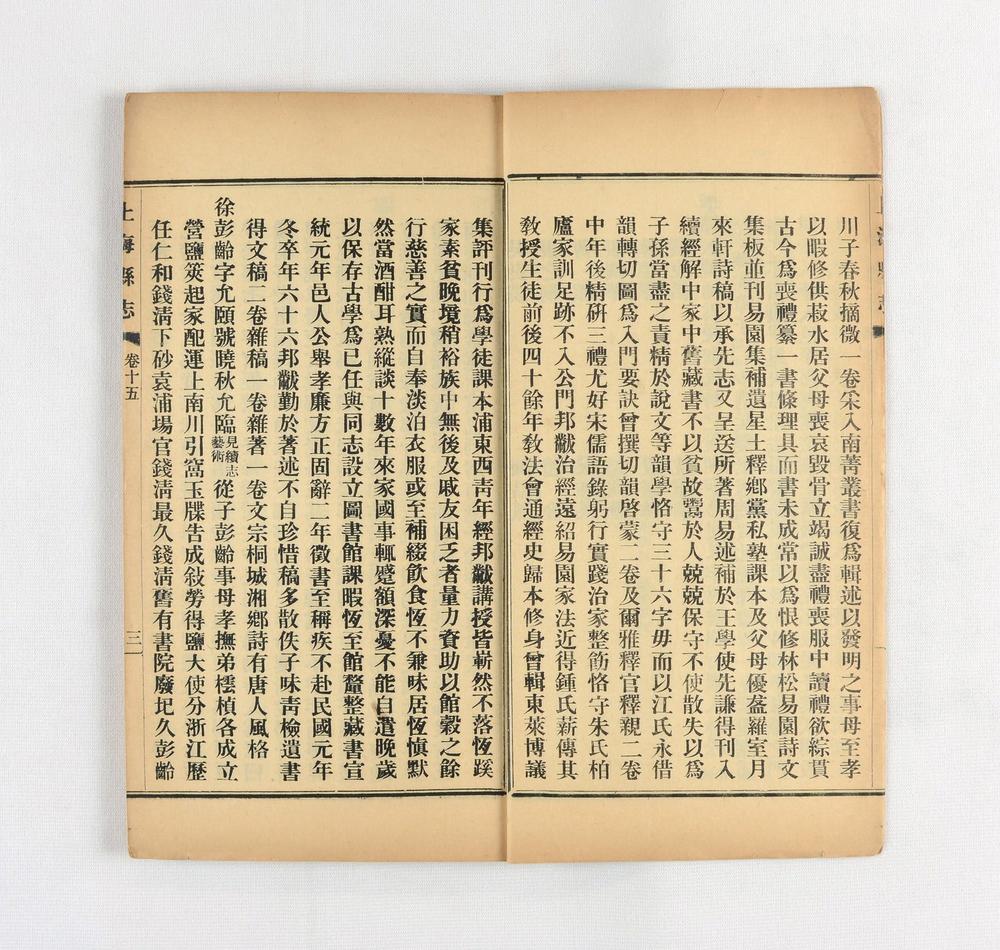 川子春秋摘微一卷采入南菁叢書復爲輯述以發明之事母至孝
以暇修供菽水居父母喪哀毀骨立竭誠盡禮喪服中讀禮欲綜貫
古今爲喪禮纂一書條理具而書未成常以爲恨修林松易園詩文
集板並刊易園集補遺星土釋鄉黨私塾課本及父母優盋羅室月
來軒詩稿以承先志又呈送所著周易述補於王學使先謙得刊入
續經解中家中舊藏書不以貧故鬻於人兢兢保守不使散失以爲
子孫當盡之責精於說文等韻學恪守三十六字毋而以江氏永借
韻轉切圖爲入門要訣曾撰切韻啓蒙二卷及爾雅釋官釋親二卷
中年後精硏三禮尤好宋儒語錄躬行實踐治家整飭恪守朱氏柏
廬家訓足跡不入公門邦黻治經遠紹易園家法近得鍾氏薪傳其
敎授生徒前後四十餘年敎法會通經史歸本修身曾輯東萊博議
集評刊行爲學徒課本浦東西靑年經邦黻講授皆嶄然不落恆蹊
家素貧晚境稍裕族中無後及戚友困乏者量力資助以館穀之餘
行慈善之實而自奉淡泊衣服或至補綴飮食恆不兼味居恆愼默
然當酒酣耳熟縱談十數年來家國事輒蹙額深憂不能自遣晚歲
以保存古學爲已任與同志設立圖書館課暇恆至館釐整藏書宣
統元年邑人公舉孝廉方正固辭二年徵書至稱疾不赴民國元年
冬卒年六十六邦黻勤於著述不自珍惜稿多散佚子味靑檢遺書
得文稿二卷雜稿一卷雜著一卷文宗桐城湘鄉詩有唐人風格
徐彭齡字允頤號曉秋允臨見續志藝術從子彭齡事母孝撫弟橒楨各成立
營鹽筴起家配運上南川引窩玉牒吿成敍勞得鹽大使分浙江歷
任仁和錢淸下砂袁浦場官錢淸最久錢淸舊有書院廢圮久彭齡
上海縣志
卷十五
三